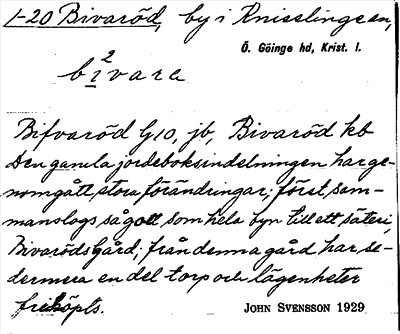 1-20 Bivaröd, by i Knisslinge sn,
Ö. Göinge hd, Krist. l.
2
bivara
Bifvaröd G10, jb, Bivaröd kb
Den gamla jordeboksindelningen har ge-
nomgått stora förändringar; först sam-
manslogs så gott som hela byn till ett säteri,
Bivarödsgård; från denna gård har se-
dermera en del torp och lägenheter
friköpts.
JOHN SVENSSON 1929